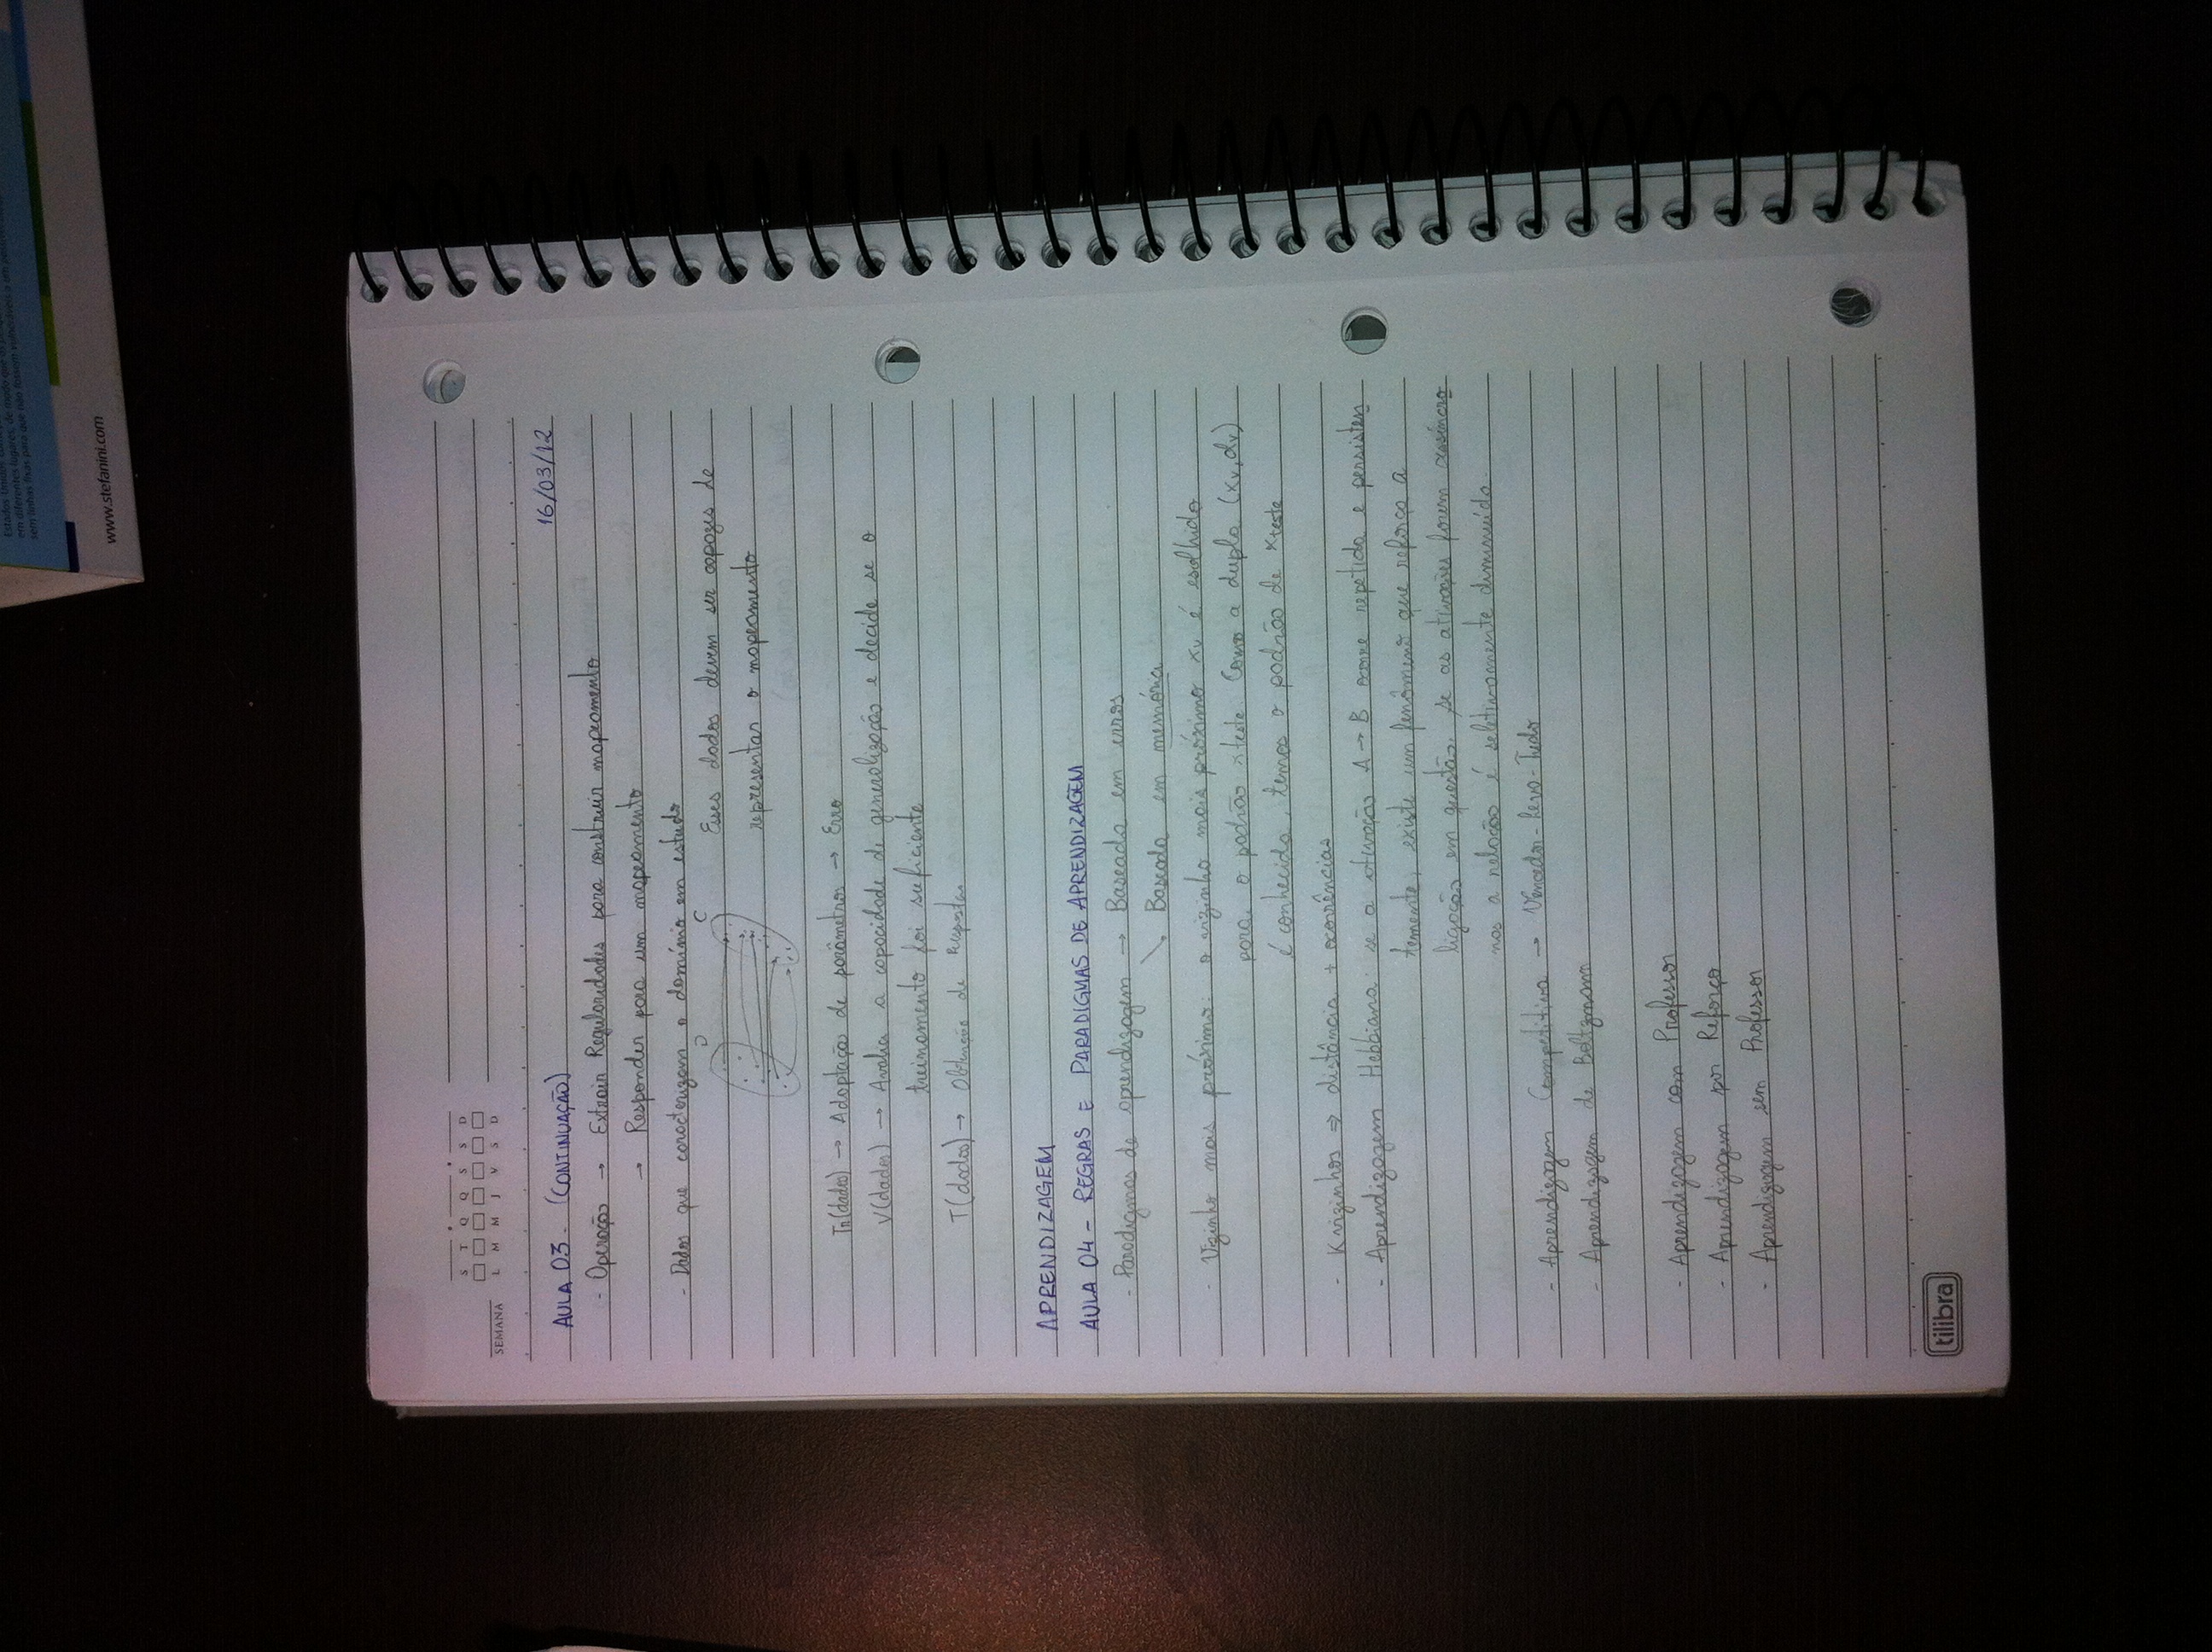 Estados Unidos
em diferentes lugares, de modo que os
sem linhas fixas para que não fossem vulneráveis a um
www.stefanini.com
S T Q Q S S D
SEMANA L M M J V S D
AULA 03 - (CONTINUAÇÃO) 16/03/12
- Operação → Extrair Regularidades para construir mapeamento
→ Responder para um mapeamento
- Dados que caracterizam o domínio em estudo
D C
Esses dados devem ser capazes de
representar o mapeamento
Tn(dados) → Adaptação de parâmetros → Erro
V(dados) → Avalia a capacidade de generalização e decide se o
treinamento foi suficiente
T(dados) → Obtenção de Respostas
APRENDIZAGEM
AULA 04 - REGRAS E PARADIGMAS DE APRENDIZAGEM
- Paradigmas de aprendizagem → Baseada em erros
↘ Baseada em memória
- Vizinho mais próximo: o vizinho mais próximo xv é escolhido
para o padrão xteste. Como a dupla (xv, dv)
é conhecida, temos o padrão de xteste
- K vizinhos ⇒ distância + ocorrências
- Aprendizagem Hebbiana: se a ativação A → B ocorre repetida e persisten
temente, existe um fenômeno que reforça a
ligação em questão. Se as ativações forem assíncro
nas a relação é seletivamente diminuída.
- Aprendizagem Competitiva → Vencedor-Leva-Tudo
- Aprendizagem de Boltzmann
- Aprendizagem com Professor
- Aprendizagem por Reforço
- Aprendizagem sem Professor
tilibra